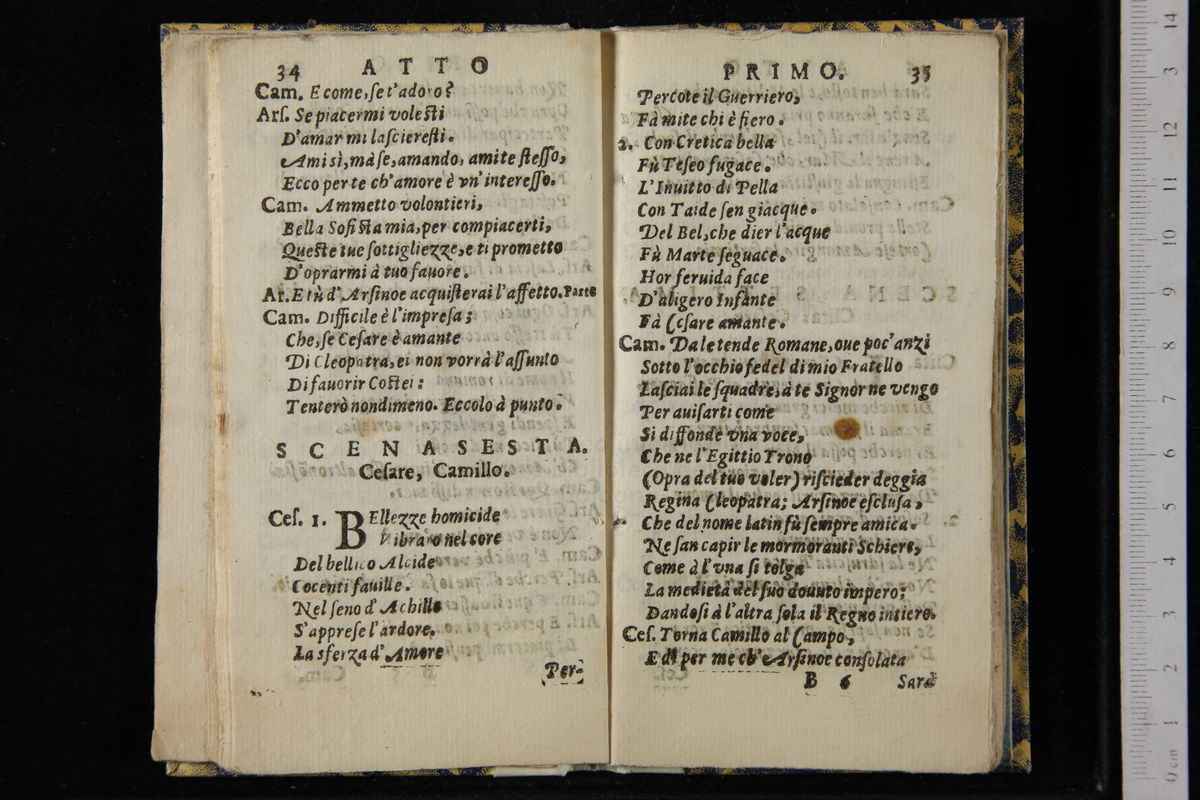 34 ATTO
Cam. E come, ſe t'adoro?
Arſ. Se piacermi voleſti
D'amar mi laſciereſti.
Ami sì, mà ſe, amando, ami te ſteſſo,
Ecco per te ch'amore è vn'intereſſo.
Cam. Ammetto volontieri,
Bella Sofiſta mia, per compiacerti,
Queſte tue ſottigliezze, e ti prometto
D'oprarmi à tuo fauore.
Ar. E tù d'Arſinoe acquiſterai l'affetto. Parte
Cam. Difficile è l'impreſa;
Che, ſe Ceſare è amante
Di Cleopatra, ei non vorrà l'aſſunto
Di fauorir Coſtei:
Tenterò nondimeno. Eccolo à punto.
SCENA SESTA.
Ceſare, Camillo.
Ceſ. 1. BEllezze homicide
Vibraro nel core
Del bellico Alcide
Cocenti fauille.
Nel ſeno d'Achille
S'appreſe l'ardore.
La sferza d'Amore
Per-
PRIMO. 35
Percote il Guerriero,
Fà mite chi è fiero.
2. Con Cretica bella
Fù Teſeo fugace.
L'Inuitto di Pella
Con Taide ſen giacque.
Del Bel, che dier l'acque
Fù Marte ſeguace.
Hor feruida face
D'aligero Infante
Fà Ceſare amante.
Cam. Da le tende Romane, oue poc'anzi
Sotto l'occhio fedel di mio Fratello
Laſciai le ſquadre, à te Signor ne vengo
Per auiſarti come
Si diffonde vna voce,
Che ne l'Egittio Trono
(Opra del tuo voler) riſcieder deggia
Regina Cleopatra; Arſinoe eſcluſa,
Che del nome latin fù ſempre amica.
Ne ſan capir le mormoranti Schiere,
Come à l'vna ſi tolga
La medietà del ſuo douuto impero;
Dandoſi à l'altra ſola il Regno intiero.
Ceſ. Torna Camillo al Campo,
E dì per me ch'Arſinoe conſolata
B 6 Sarà